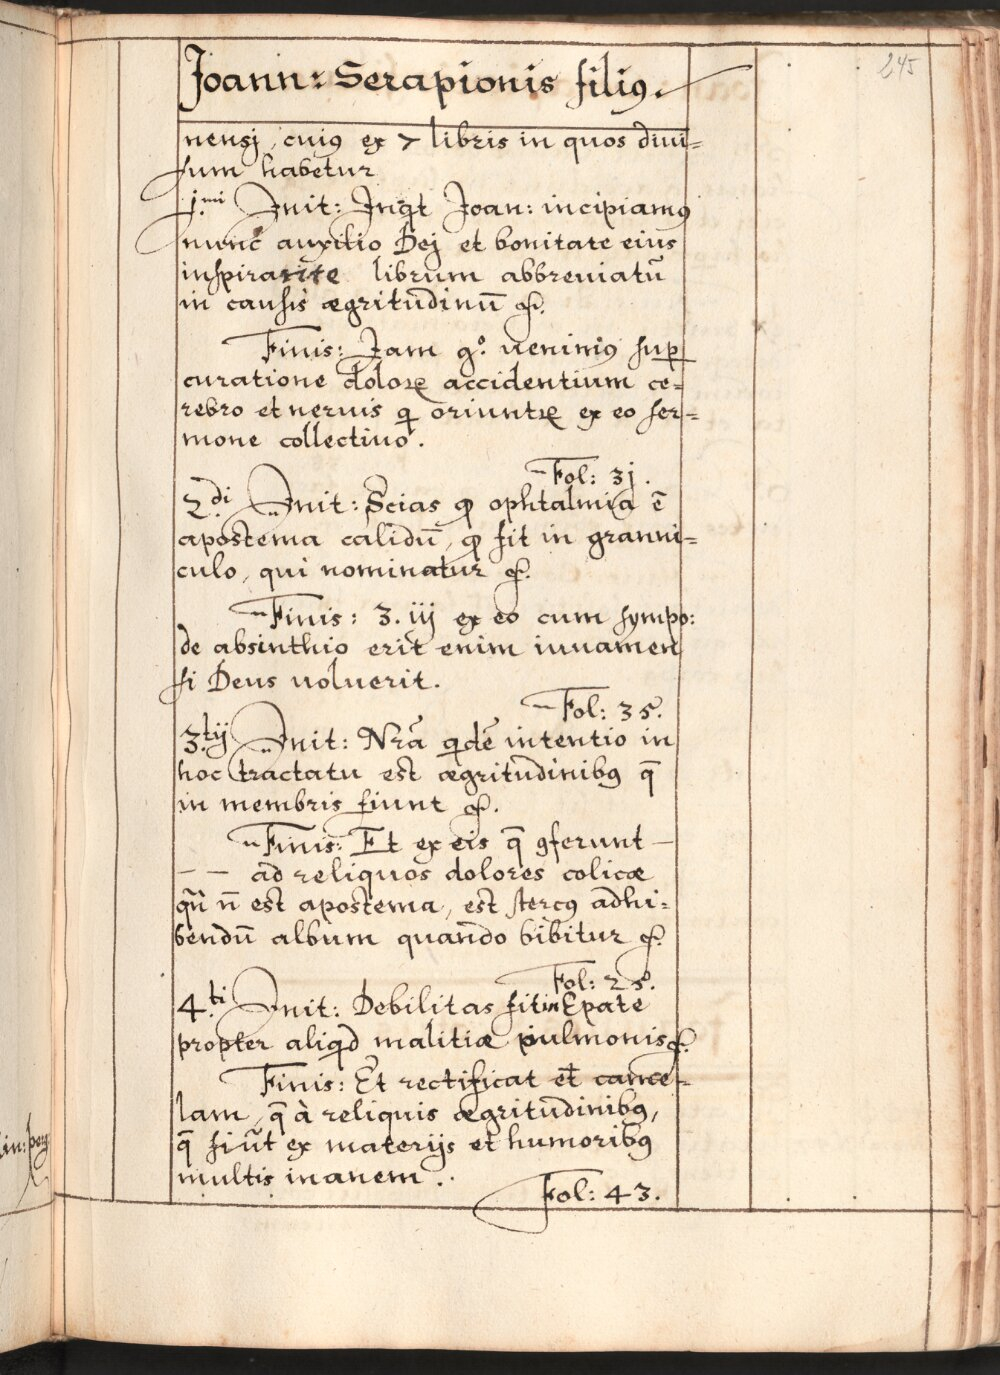 245
Joann: Serapionis filiꝰ.
nensj, cuiꝰ ex 7 libris in quos diui=
sum habetur
1.mi Init: Inqt Joan: incipiamꝰ
nunc auxilio Dej et bonitate eius
inspirante librum abbreviatū
in causis ægritudinū &.
Finis: Jam gº. venimꝰ sup
curatione doloꝝ accidentium ce=
rebro et neruis q oriuntꝝ ex eo ser=
mone collectiuo.
Fol: 3j.
2.di Init: Scias qꝫ ophtalmia ē
apostema calidū, qꝫ fit in granni=
culo, qui nominatur &.
Finis: 3. iij ex eo cum sympo:
de absinthio erit enim iuuamen
si Deus uoluerit.
Fol: 35.
3.tij Init: Nrā qidē intentio in
hoc tractatu est ægritudinibꝰ q̄
in membris fiunt &.
Finis: Et ex eis q̄ ꝯferunt —
— — ad reliquos dolores colicæ
qū n̄ est apostema, est stercꝰ adhi=
bendū album quando bibitur &.
Fol: 28.
4.ti Init: Debilitas fit in Epate
propter aliqd malitiæ pulmonis &.
Finis: Et rectificat et cance=
lam, q̄ à reliquis ægritudinibꝰ,
q̄ fiūt ex materijs et humoribꝰ
multis inanem.
Fol: 43.